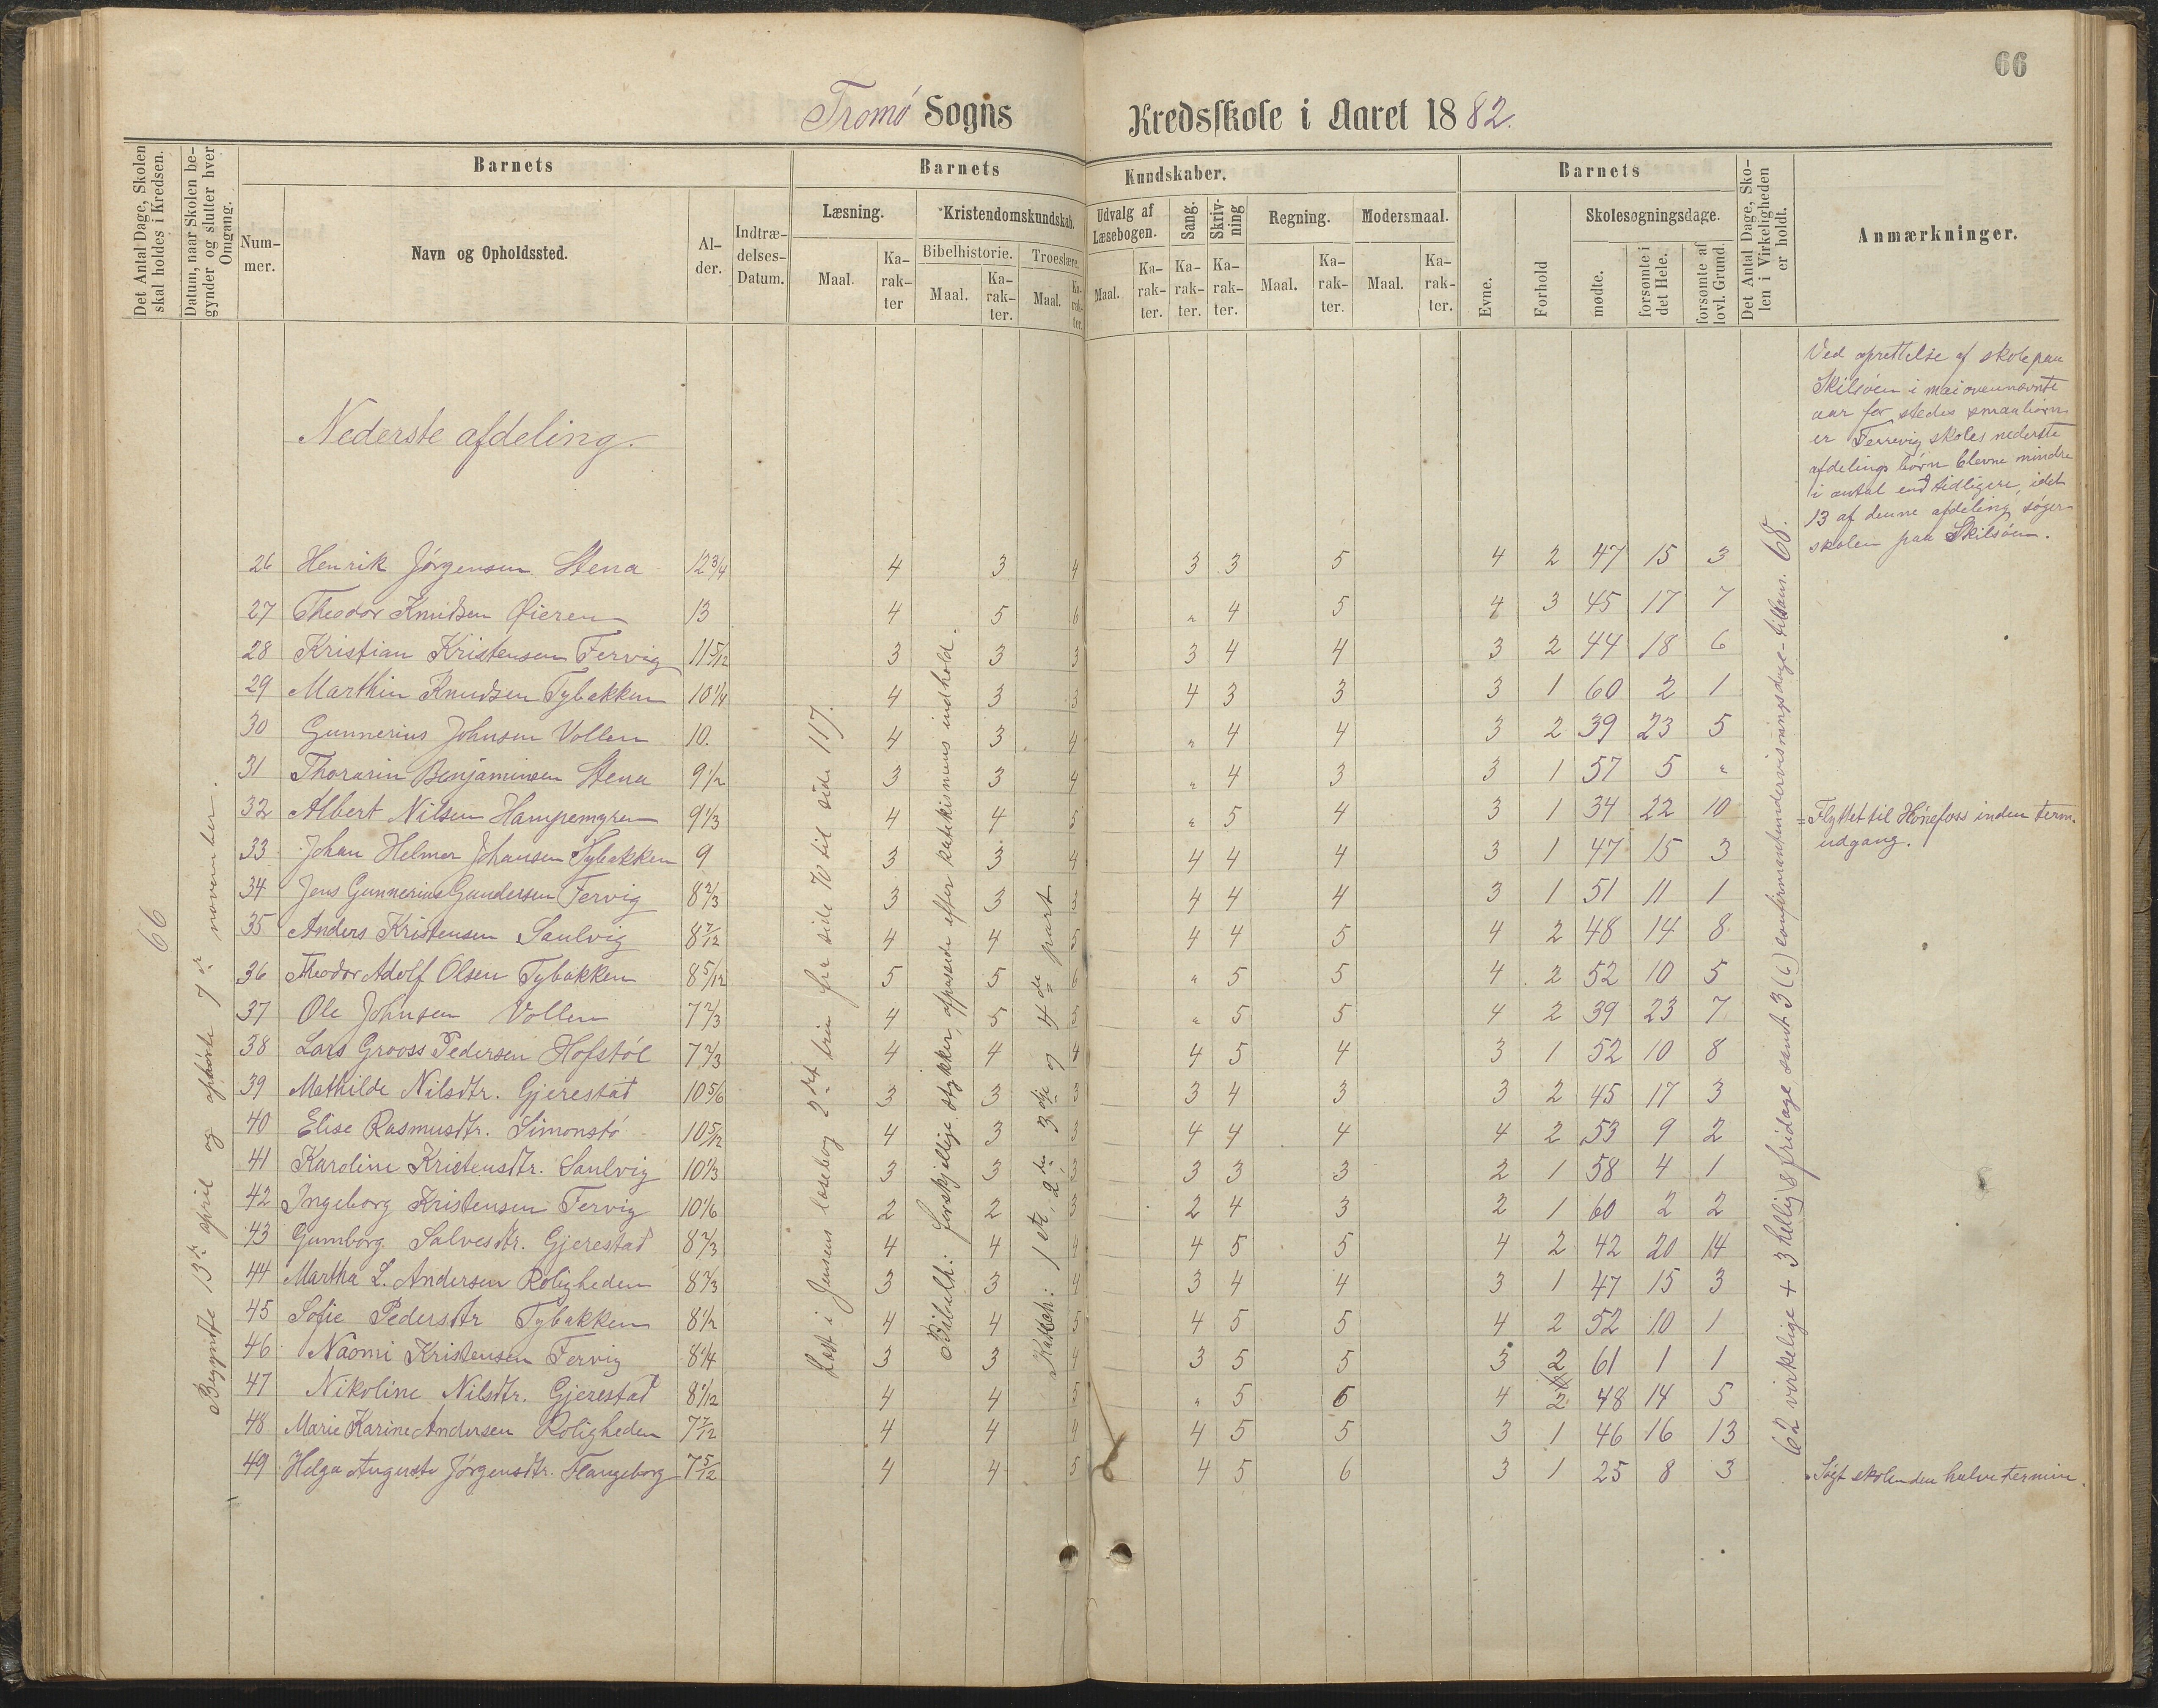 66
Tromö Sogns Kredsskole i Aaret 1882.
Det Antal Dage, Skolen skal holdes i Kredsen.
Datum, naar Skolen begynder og slutter hver Omgang.
Barnets
Nummer.
Navn og Opholdssted.
Alder.
Indtrædelses-Datum.
Barnets Kundskaber.
Læsning.
Maal.
Karakter
Kristendomskundskab.
Bibelhistorie.
Maal.
Karakter.
Troeslære.
Maal.
Karakter.
Udvalg af Læsebogen.
Maal.
Karakter.
Sang.
Karakter.
Skrivning
Karakter.
Regning.
Maal.
Karakter.
Modersmaal.
Maal.
Karakter.
Barnets
Evne.
Forhold
Skolesøgningsdage.
mødte.
forsømte i det Hele.
forsømte af lovl. Grund.
Det Antal Dage, Skolen i Virkeligheden er holdt.
Anmærkninger.
66
Begyndte 13de april og ophörte 7de november.
Nederste afdeling.
Læst i Jensens læsebog 2det trin fra side 70 til side 117.
Bibelh: forskjellige stykker, oppassede efter katekismens indhold.
Katek: 1ste, 2den, 3dje og 4de part
62 virkelige + 3 hellig & fridage samt 3 (6) confirmantundervisningsdage - tilsam. 68.
Ved oprettelse af skole paa
Skilsöen i mai ovennævnte
aar for stedes smaabörn
er Færevig skoles nederste
afdelings börn blevne mindre
i antal end tidligere, idet
13 af denne afdeling söger
skolen paa Skilsöen.
26 Henrik Jörgensen Stena 12 3/4 4 3 4 3 3 5 4 2 47 15 3
27 Theodor Knudsen Öieren 13 4 5 6 " 4 5 4 3 45 17 7
28 Kristian Kristensen Fervig 11 5/12 3 3 3 3 4 4 3 2 44 18 6
29 Marthin Knudsen Tybakken 10 1/4 4 3 3 4 3 3 3 1 60 2 1
30 Gunnerius Johnsen Vollen 10. 4 3 4 " 4 4 3 2 39 23 5
31 Thorarin Benjaminsen Stena 9 1/2 3 3 4 " 4 3 3 1 57 5 "
32 Albert Nilsen Hampemyren 9 1/3 4 4 5 " 5 4 3 1 34 22 10 = Flyttet til Hönefoss inden term.
udgang.
33 Johan Helmer Johansen Tybakken 9 3 3 4 4 4 4 3 1 47 15 3
34 Jens Gunnerius Gundersen Fervig 8 2/3 3 3 3 4 4 4 3 1 51 11 1
35 Anders Kristensen Saulvig 8 7/12 4 4 5 4 4 5 4 2 48 14 8
36 Theodor Adolf Olsen Tybakken 8 5/12 5 5 6 " 5 5 4 2 52 10 5
37 Ole Johnsen Vollen 7 2/3 4 5 5 " 5 5 4 2 39 23 7
38 Lars Grooss Pedersen Hofstöl 7 2/3 4 4 4 4 5 4 3 1 52 10 8
39 Mathilde Nilsdtr. Gjerestad 10 5/6 3 3 3 3 4 3 3 2 45 17 3
40 Elise Rasmusdtr. Simonstö 10 5/12 4 3 3 4 4 4 4 2 53 9 2
41 Karoline Kristensdtr. Saulvig 10 1/3 3 3 3 3 3 3 2 1 58 4 1
42 Ingeborg Kristensen Fervig 10 1/6 2 2 3 2 4 3 2 1 60 2 2
43 Gumborg Salvesdtr. Gjerestad 8 2/3 4 4 4 4 5 5 4 2 42 20 14
44 Martha L. Andersen Roligheden 8 2/3 3 3 4 3 4 4 3 1 47 15 3
45 Sofie Pedersdtr Tybakken 8 1/2 4 4 5 4 5 5 4 2 52 10 1
46 Naomi Kristensen Fervig 8 1/4 3 3 4 3 5 5 3 2 61 1 1
47 Nikoline Nilsdtr. Gjerestad 8 1/12 4 4 5 " 5 6 4 2 48 14 5
48 Marie Karine Andersen Roligheden 7 7/12 4 4 4 4 5 5 3 1 46 16 13
49 Helga Auguste Jörgensdtr. Flangeborg 7 5/12 4 4 5 4 5 6 3 1 25 8 3 Sögt skolen den halve termin.